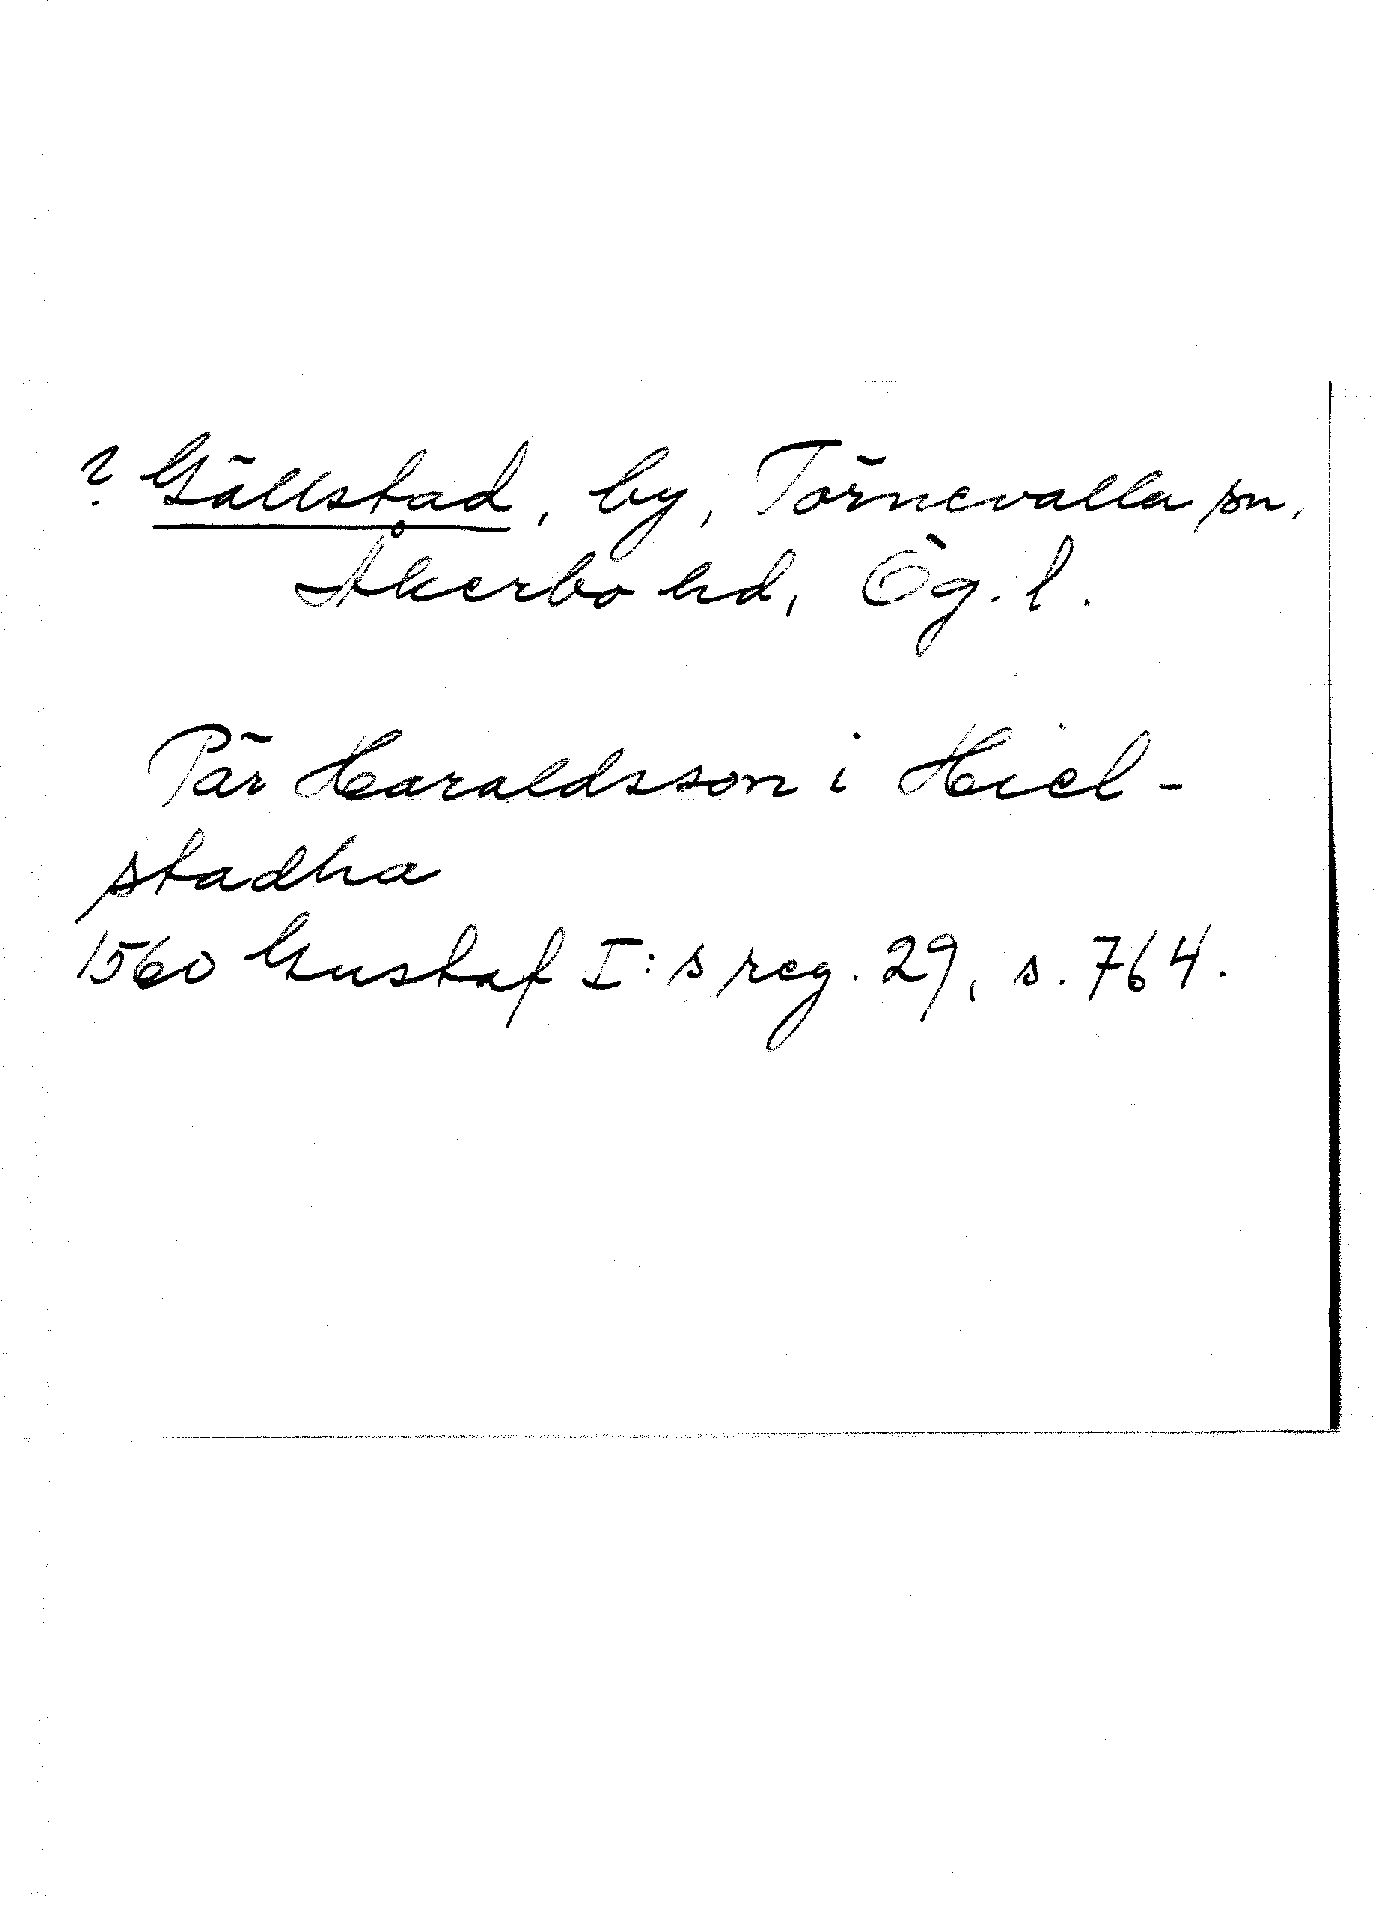 ? Gällstad, by, Törnevalla sn,
Åkerbo hd, Ög. l.
Pär Haraldsson i Hiel-
stadha
1560 Gustaf I:s reg. 29, s. 764.